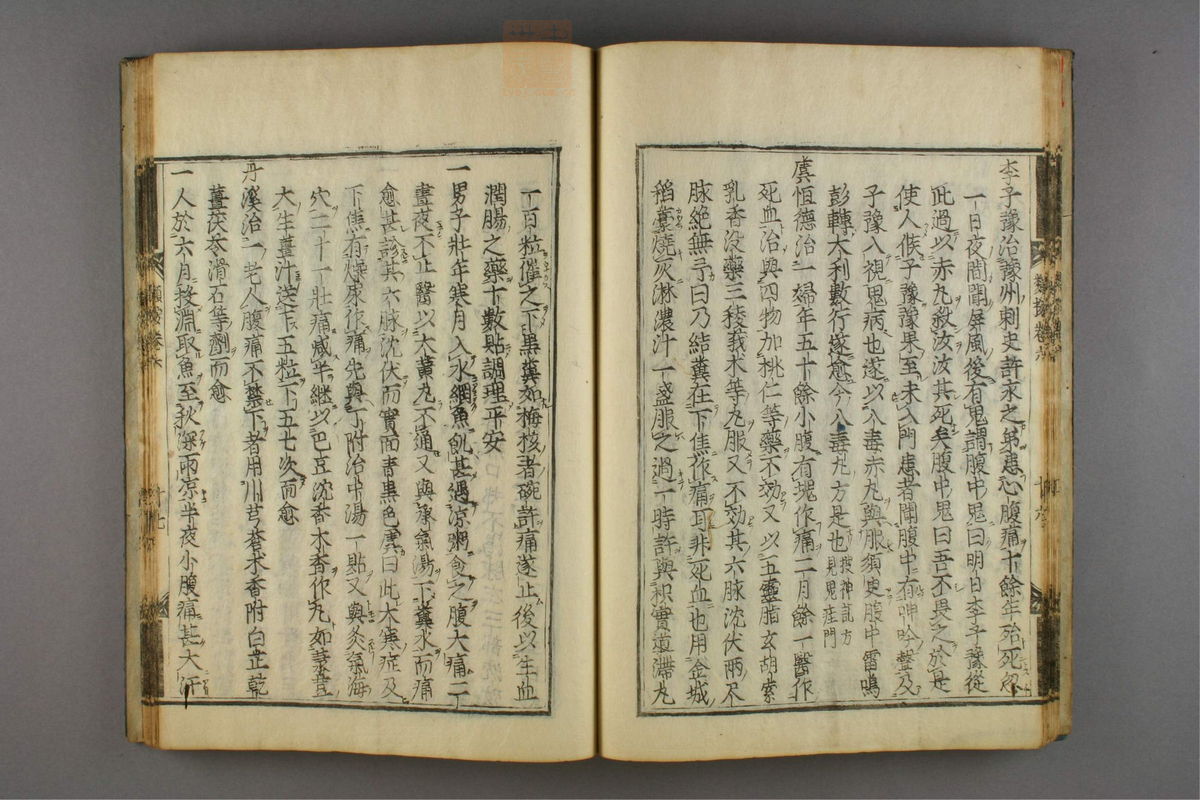 李子豫治豫州刺史許永之弟患心腹痛十餘年殆死忽
一日夜間聞屏風後有鬼謂腹中鬼曰明日李子豫從
此過以赤丸殺汝汝其死矣腹中鬼曰吾不畏之於是
使人候子豫豫果至未入門患者聞腹中有呻吟聲及
子豫入視鬼病也遂以八毒赤丸與服須臾腹中雷鳴
彭轉大利數行遂愈今八毒丸方是也
搜神記方
見鬼疰門
虞恒德治一婦年五十餘小腹有塊作痛二月餘一醫作
死血治與四物加桃仁等藥不効又以五靈脂玄胡索
乳香没藥三稜莪朮等丸服又不効其六脉沈伏兩尺
脉絶無予曰乃結糞在下焦作痛耳非死血也用金城
稻藁燒灰淋濃汁一盞服之過一時許與枳實導滯丸
一百粒催之下黒糞如梅核者碗許痛遂止後以生血
潤腸之藥十數貼調理平安
一男子壯年寒月入水網魚飢甚過涼粥食之腹大痛二
晝夜不止醫以大黄丸不通又與承氣湯下糞水而痛
愈甚診其六脉沈伏而實面青黒色虞曰此大寒症及
下焦有燥屎作痛先與丁附治中湯一貼又與灸氣海
穴二十一壯痛減半繼以巴豆沈香木香作丸如菉豆
大生薑汁送下五粒下五七次而愈
丹溪治一老人腹痛不禁下者用川芎蒼朮香附白芷乾
薑茯苓滑石等劑而愈
一人於六月投淵取魚至秋深雨凉半夜小腹痛甚大汗